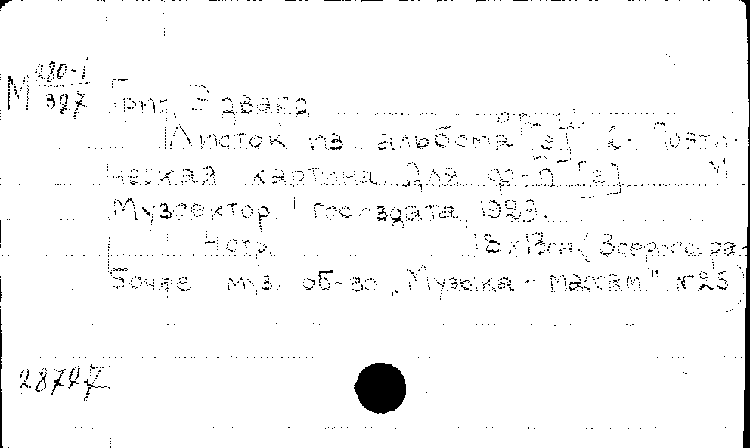 М 280-1/327
Григ, Эдвард
Листок из альбома [э] и Поэти-
ческая картина Для ф-п [г]
Музсектор Госиздата, 1929.
4 стр. 18 x 13 см (Всерос. ра-
бочее муз. об-во „Музыка - массам" № 25)
28727